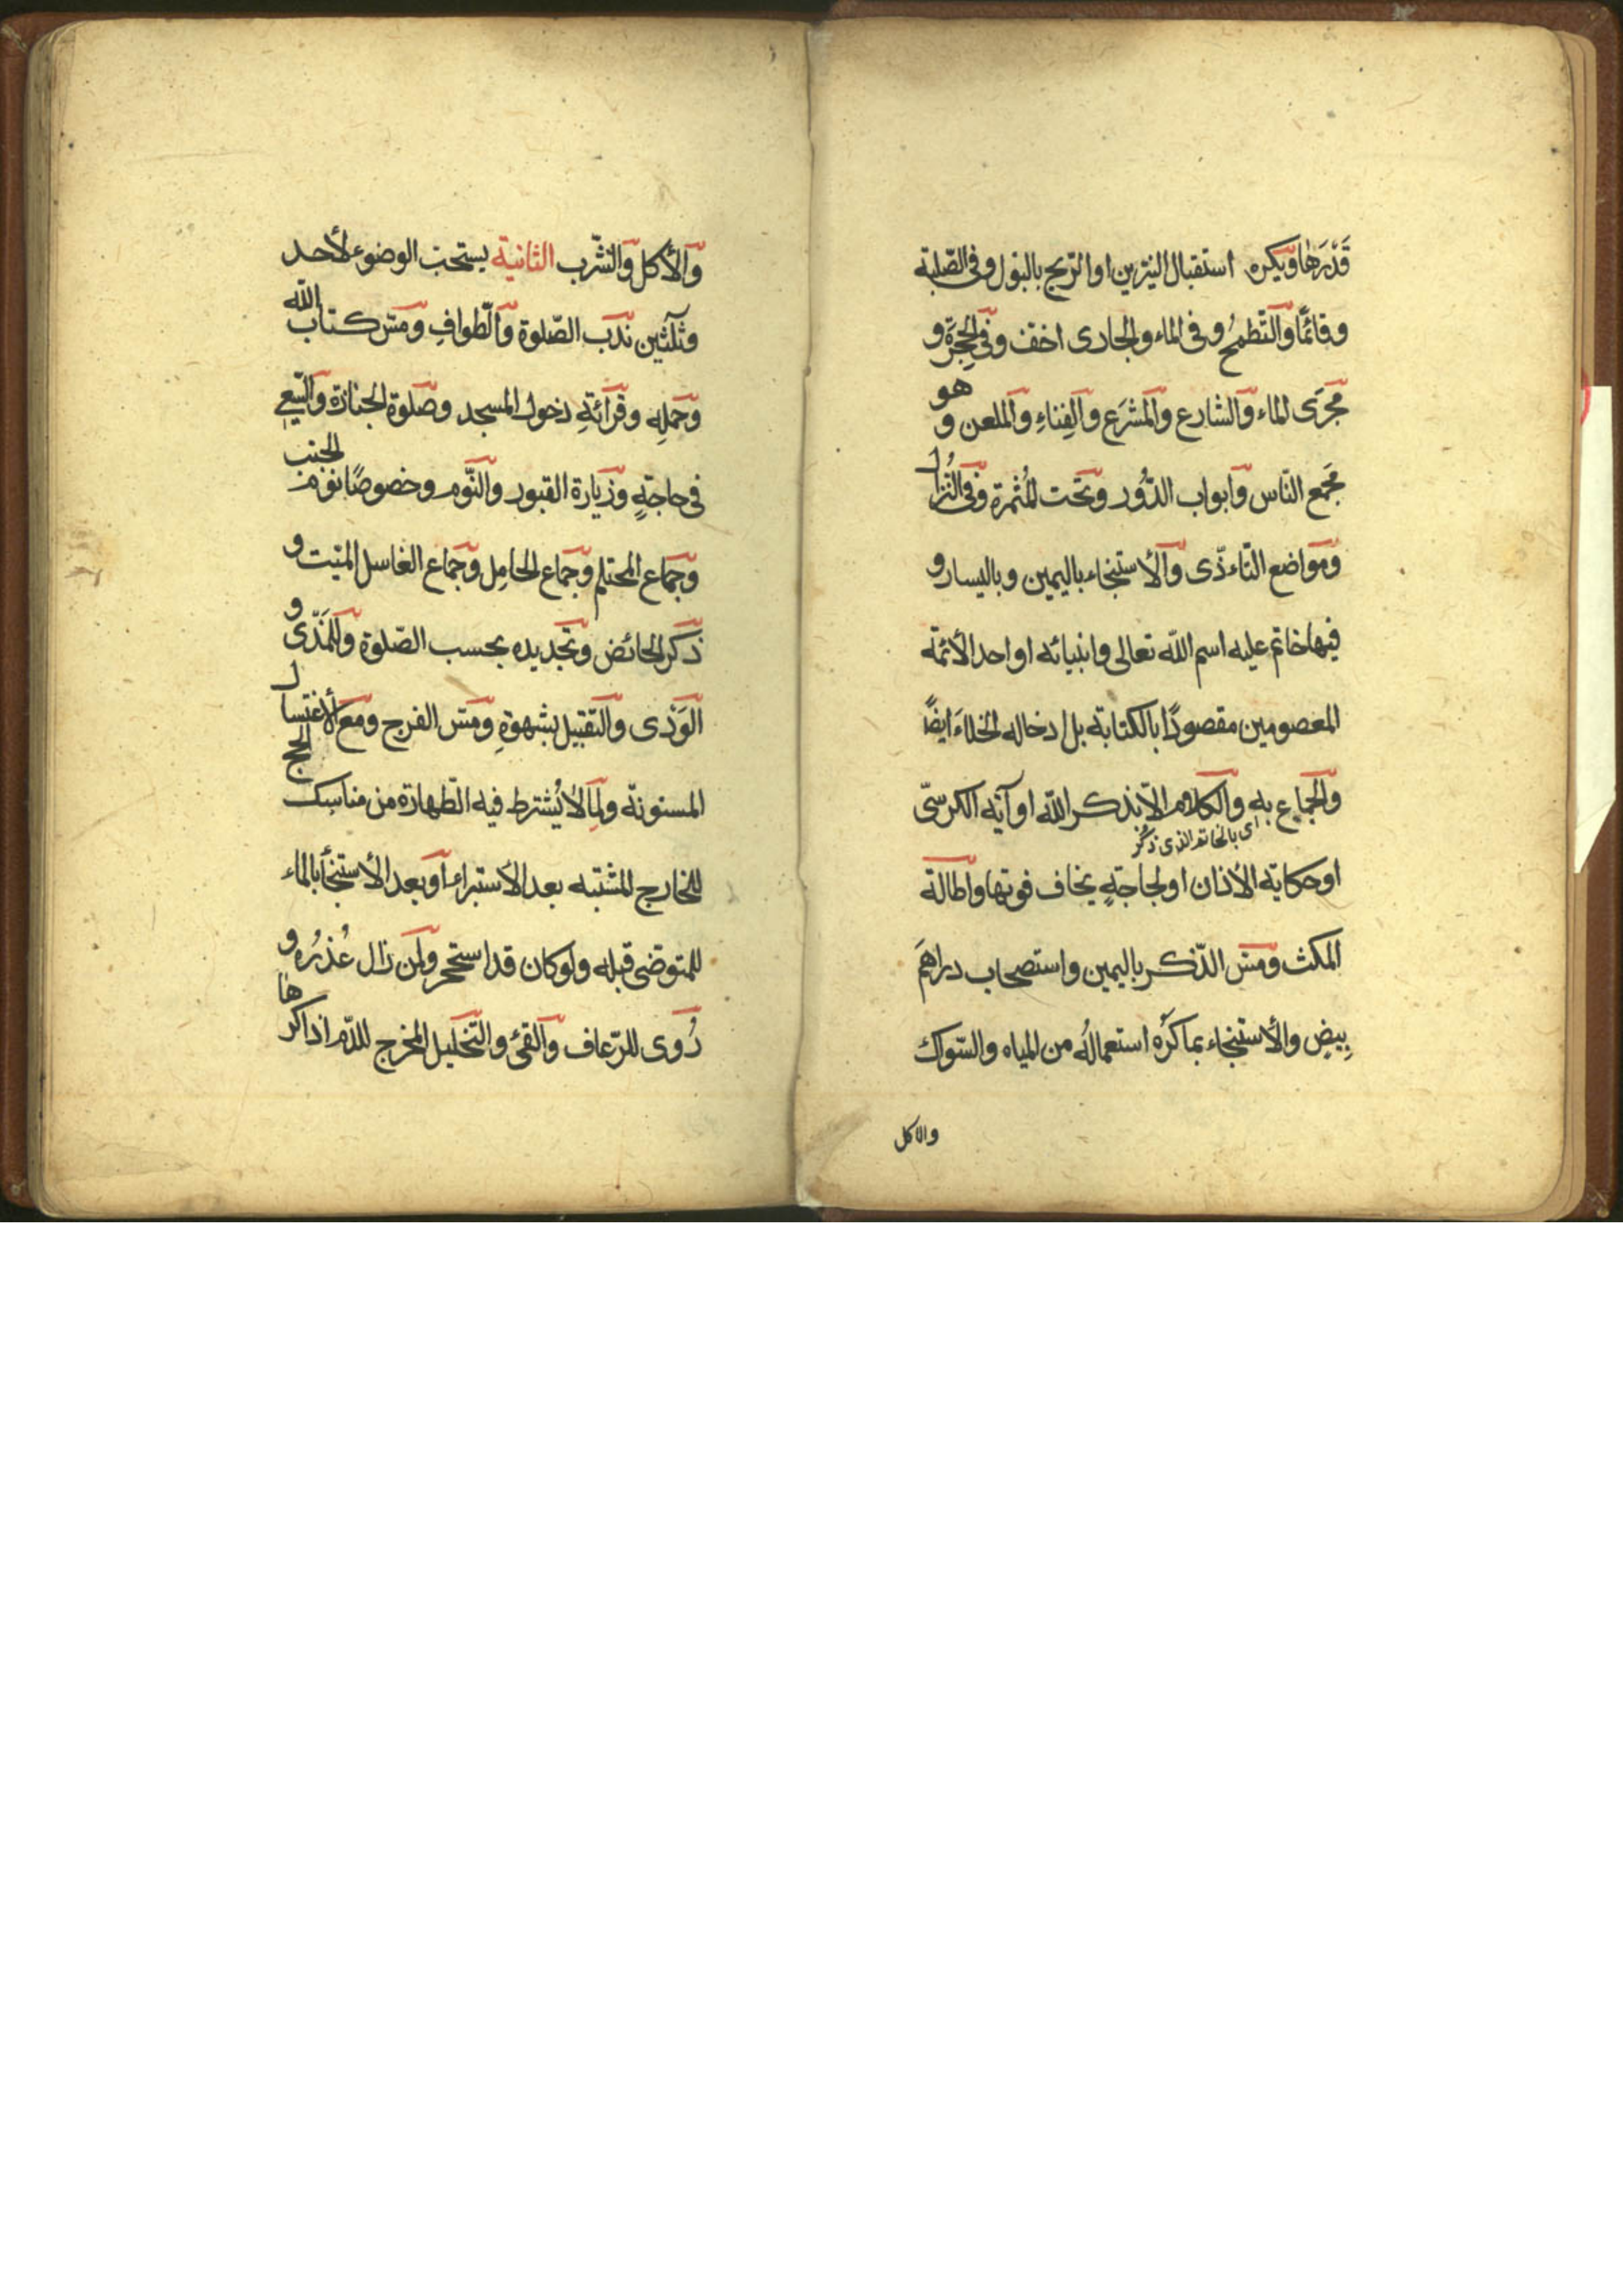 قَدْرَهٰا ويكره استقبال النيّرين او الرّيح بالبول وفى الصّلبة
وقائمًا والتّطمحُ وفى الماء والجارى اخفّ وفى الحِجَرَة و
هو
مَجرَى الماء والشارع والمَشرَع والفِناءِ والملعن و
مَجمَع النّاس وابواب الدّور وتحت المُثمرة وفى النُزّال
ومَواضع التّاءذّى والأستنجاء باليمين وباليسار و
فيها خاتم عليه اسم اللّه تعالى وانبيائه او احد الأئمّة
المعصومين مقصودًا بالكتابة بل ادخاله الخلاءَ ايضًا
والجماع بهِ والكلام الّا بذكر اللّه او آيه الكرسىّ
اى بالخاتم الذى ذكر
او حكاية الأذان او لحاجةٍ يخاف فوتها واطالة
المكث ومسّ الذّكر باليمين واستصحاب دراهمَ
بِيضٍ والأستنجاء بما كرُه استعمالُه من المياه والسّواك
والاكل
والأكل والشّرب الثانية يستحبّ الوضوء لأحد
وثلٰثين ندب الصّلوة والطّوافِ ومسّ كتاب اللّه
وحَملِه وقرائةِ دخول المسجد وصَلوة الجنازة والسّعىِ
فى حاجةٍ وزيارة القبور والنّوم وخصوصًا نوم الجنب
وجماع المحتلم وجماع الحامِل وجماع الغاسل الميّت و
ذكر الحائض وتجديده بحسب الصّلوة وللمَذّى و
الوَذى والتقبيل بشهوةٍ ومسّ الفرج ومع الأغتسال
المسنونة ولِما لا يُشترط فيه الطّهارة من مناسِك الحج
للخارج المشتبه بعد الأستبراء او بعد الأستنجأ بالماء
للمتوضى قبله ولو كان قد استجمر ولمن زال عُذرُه و
رُوى للرّعاف والقئ والتّخليل المخرج للدّم اذا كرهٰا